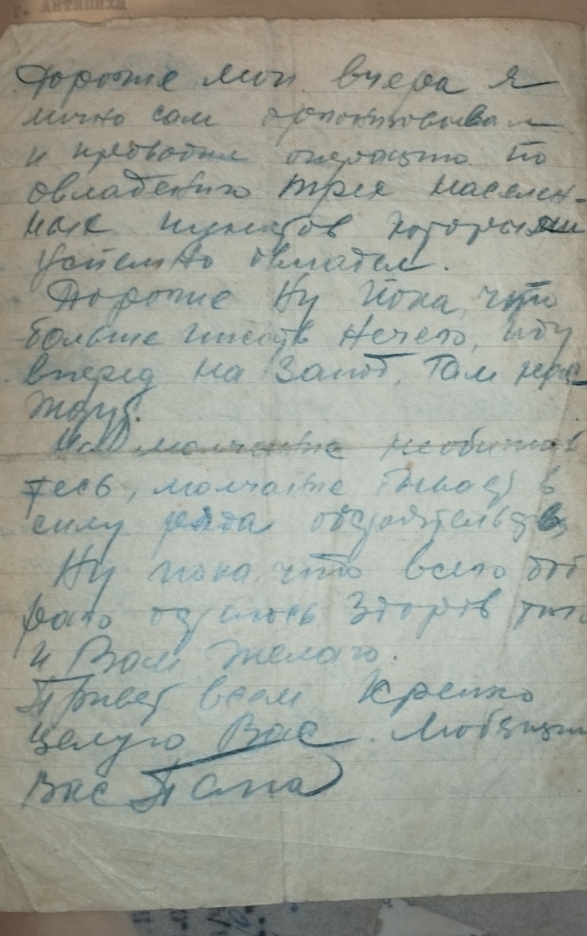 г. Антипиха
Дорогие мои вчера я
лично сам организовывал
и проводил операцию по
овладению трех населен-
ных пунктов которыми
успешно овладел.
Дорогие Ну пока что
больше писать нечего, иду
вперед на Запад, там нас
ждут.
На молчание необижай
тесь, молчание бывает в
силу ряда обстоятельств
Ну пока что всего доб
рого остаюсь здоров
и Вам желаю.
Привет всем крепко
целую Вас. Любящий
Вас Папа